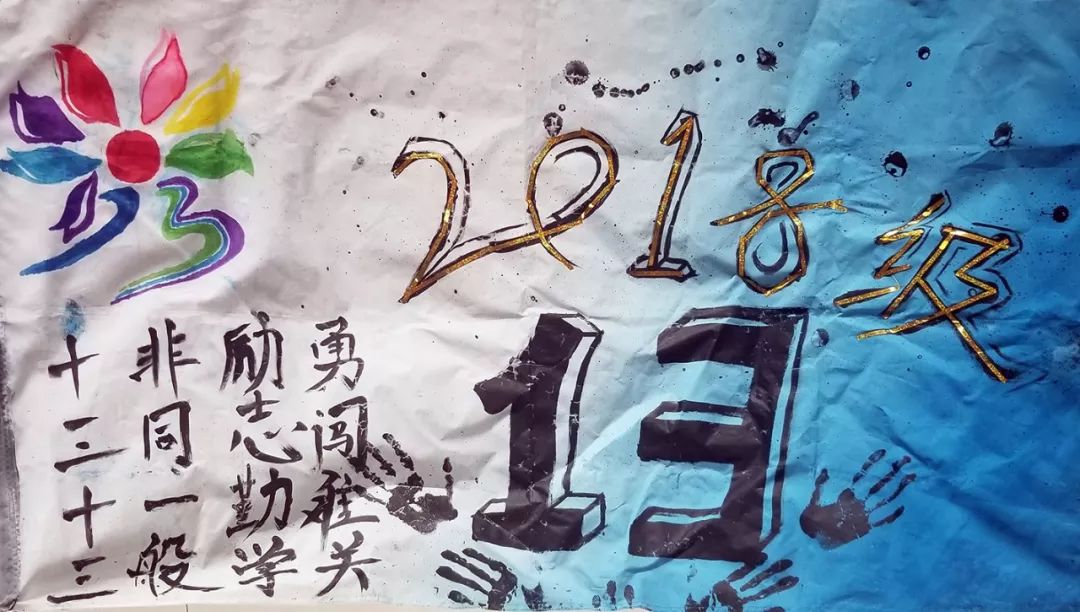 2018级
13
十三十三
非同一般
励志勤学
勇闯难关